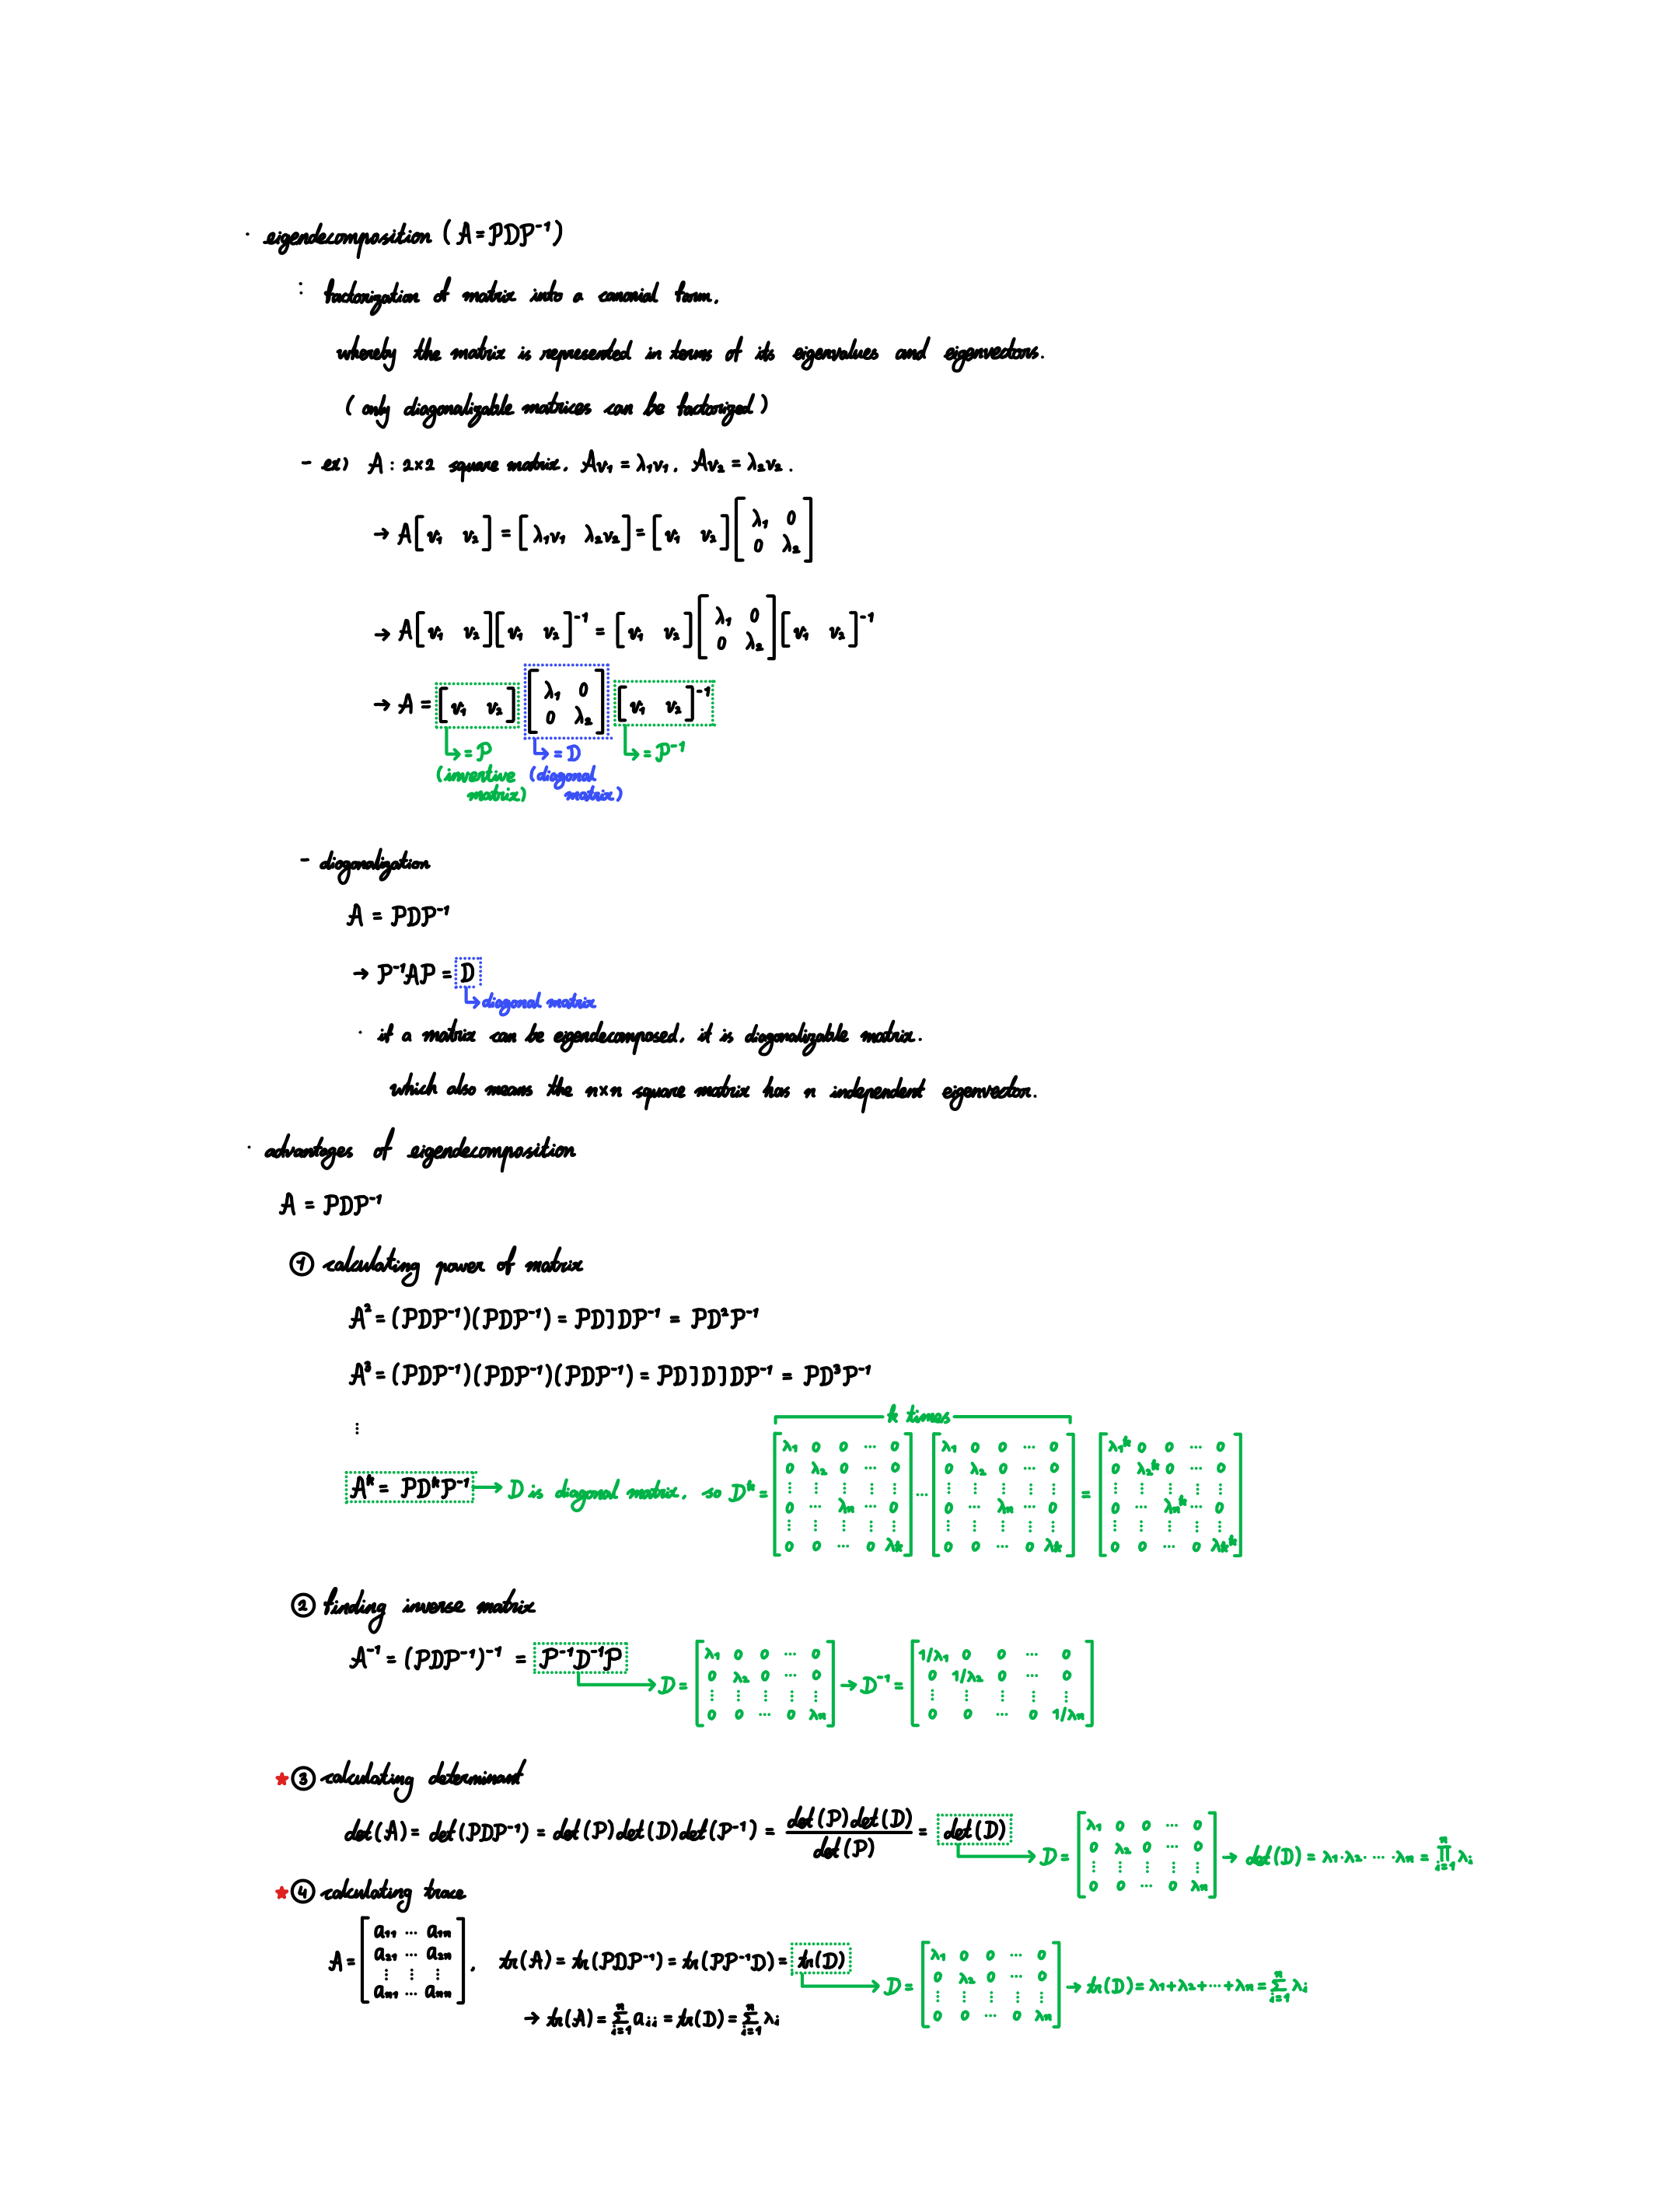 · eigendecomposition ( A = PDP⁻¹ )
: factorization of matrix into a canonial form.
whereby the matrix is represented in terms of its eigenvalues and eigenvectors.
( only diagonalizable matrices can be factorized )
- ex) A : 2×2 square matrix, Av₁ = λ₁v₁, Av₂ = λ₂v₂ .
→ A [ v₁ v₂ ] = [ λ₁v₁ λ₂v₂ ] = [ v₁ v₂ ] [ λ₁ 0 ; 0 λ₂ ]
→ A [ v₁ v₂ ] [ v₁ v₂ ]⁻¹ = [ v₁ v₂ ] [ λ₁ 0 ; 0 λ₂ ] [ v₁ v₂ ]⁻¹
→ A = [ v₁ v₂ ] [ λ₁ 0 ; 0 λ₂ ] [ v₁ v₂ ]⁻¹
↳ = P ↳ = D ↳ = P⁻¹
(invertive (diagonal
matrix) matrix)
- diagonalization
A = PDP⁻¹
→ P⁻¹AP = D
↳ diagonal matrix
· if a matrix can be eigendecomposed, it is diagonalizable matrix.
which also means the n×n square matrix has n independent eigenvector.
· advantages of eigendecomposition
A = PDP⁻¹
① calculating power of matrix
A² = (PDP⁻¹)(PDP⁻¹) = PDIDP⁻¹ = PD²P⁻¹
A³ = (PDP⁻¹)(PDP⁻¹)(PDP⁻¹) = PDIDIDP⁻¹ = PD³P⁻¹
⋮
k times
Aᵏ = PDᵏP⁻¹ → D is diagonal matrix, so Dᵏ = [ λ₁ 0 0 ⋯ 0 ; 0 λ₂ 0 ⋯ 0 ; ⋮ ⋮ ⋮ ⋮ ⋮ ; 0 ⋯ λn ⋯ 0 ; ⋮ ⋮ ⋮ ⋮ ⋮ ; 0 0 ⋯ 0 λk ] ⋯ [ λ₁ 0 0 ⋯ 0 ; 0 λ₂ 0 ⋯ 0 ; ⋮ ⋮ ⋮ ⋮ ⋮ ; 0 ⋯ λn ⋯ 0 ; ⋮ ⋮ ⋮ ⋮ ⋮ ; 0 0 ⋯ 0 λk ] = [ λ₁ᵏ 0 0 ⋯ 0 ; 0 λ₂ᵏ 0 ⋯ 0 ; ⋮ ⋮ ⋮ ⋮ ⋮ ; 0 ⋯ λnᵏ ⋯ 0 ; ⋮ ⋮ ⋮ ⋮ ⋮ ; 0 0 ⋯ 0 λkᵏ ]
② finding inverse matrix
A⁻¹ = (PDP⁻¹)⁻¹ = P⁻¹D⁻¹P → D = [ λ₁ 0 0 ⋯ 0 ; 0 λ₂ 0 ⋯ 0 ; ⋮ ⋮ ⋮ ⋮ ⋮ ; 0 0 ⋯ 0 λn ] → D⁻¹ = [ 1/λ₁ 0 0 ⋯ 0 ; 0 1/λ₂ 0 ⋯ 0 ; ⋮ ⋮ ⋮ ⋮ ⋮ ; 0 0 ⋯ 0 1/λn ]
★ ③ calculating determinant
det(A) = det(PDP⁻¹) = det(P)det(D)det(P⁻¹) = det(P)det(D) / det(P) = det(D) → D = [ λ₁ 0 0 ⋯ 0 ; 0 λ₂ 0 ⋯ 0 ; ⋮ ⋮ ⋮ ⋮ ⋮ ; 0 0 ⋯ 0 λn ] → det(D) = λ₁·λ₂· ⋯ ·λn = ∏ⁿᵢ₌₁ λᵢ
★ ④ calculating trace
A = [ a₁₁ ⋯ a₁n ; a₂₁ ⋯ a₂n ; ⋮ ⋮ ⋮ ; an₁ ⋯ ann ] , tr(A) = tr(PDP⁻¹) = tr(PP⁻¹D) = tr(D) → D = [ λ₁ 0 0 ⋯ 0 ; 0 λ₂ 0 ⋯ 0 ; ⋮ ⋮ ⋮ ⋮ ⋮ ; 0 0 ⋯ 0 λn ] → tr(D) = λ₁+λ₂+⋯+λn = Σⁿᵢ₌₁ λᵢ
→ tr(A) = Σⁿᵢ₌₁ aᵢᵢ = tr(D) = Σⁿᵢ₌₁ λᵢ